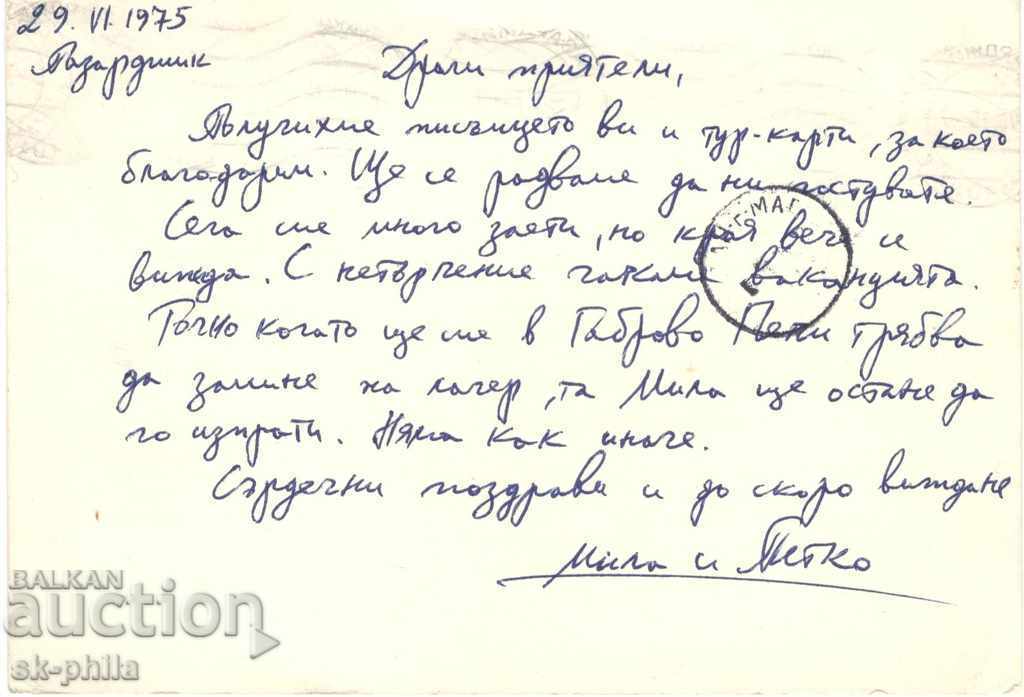 29. VI. 1975
Пазарджик
Драги приятели,
Получихме писъмцето ви и тур-карти, за което
благодарим. Ще се радваме да ни гостувате.
Сега сме много заети, но края вече се
вижда. С нетърпение чакаме ваканцията.
Точно когато ще сме в Габрово Пепи трябва
да замине на лагер, та Мила ще остане да
го изпрати. Няма как иначе.
Сърдечни поздрави и до скоро виждане
Мила и Петко
BALKAN
auction
sk-phila